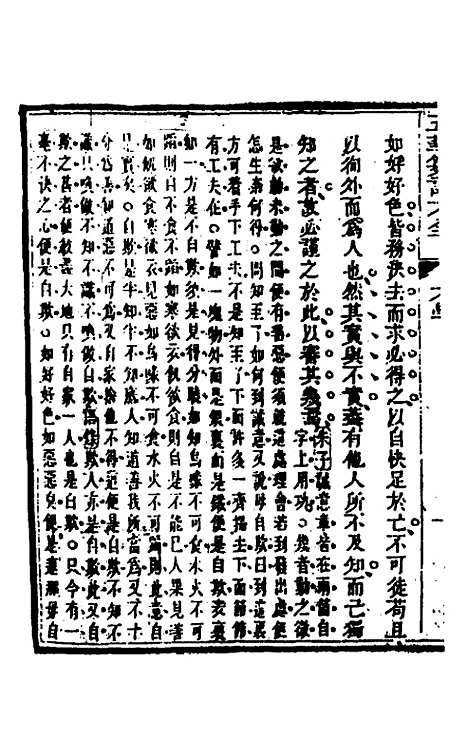 如好好色皆務決去而求必得之以自快足於己不可徒苟且
以徇外而爲人也然其實與不實蓋有他人所不及知而己獨
知之者故必謹之於此以審其幾焉
朱子誠意章皆在兩箇自
字上用功○幾者動之微
是欲動未動之間便有善惡便須就這處理會若到發出處便
怎生奈何得○問知至了如何到誠意又說毋自欺曰到這裏
方可着手下工夫不是知至了下面許多一齊掃去下面節節
有工夫在○譬如一塊物外面是銀裏面是鐵便是自欺須要
如一方是不自欺須是見得分曉如知烏喙不可食水火不可
蹈則自不食不蹈如寒欲衣飢欲食則自是不能已人果見善
如飢欲食寒欲衣見惡如烏喙不可食水火不可蹈則此意自
是實矣○自欺是半知半不知底人知道善我所當爲又不十
分爲善知道惡不可爲又自家舍他不得這便是自欺不知不
識只喚做不知不識不喚做自欺欺人亦是自欺此又自
欺之甚者便教盡大地只有自家一人也是自欺○只今有一
毫不決之心便是自欺○如好好色如惡惡臭便是自